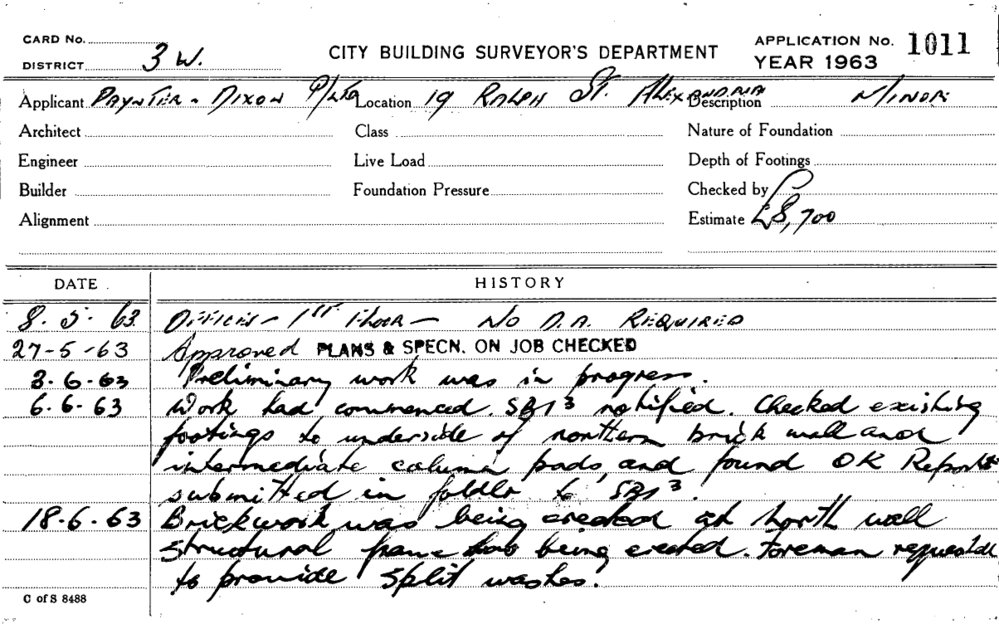 CARD No.
DISTRICT 3 W.
CITY BUILDING SURVEYOR'S DEPARTMENT
APPLICATION No. 1011
YEAR 1963
Applicant PAYNTER - DIXON P/LTD Location 19 RALPH ST. ALEXANDRIA Description MINOR
Architect Class Nature of Foundation
Engineer Live Load Depth of Footings
Builder Foundation Pressure Checked by
Alignment Estimate £8,700
DATE HISTORY
8. 5. 63 OFFICES - 1ST Floor - No D.A. REQUIRED
27-5-63 Approved PLANS & SPECN. ON JOB CHECKED
3.6.63 Preliminary work was in progress.
6.6.63 Work had commenced. notified. Checked existing
footings to underside of northern brick wall and
intermediate column pads, and found OK Report
submitted in folder to
18.6.63 Brickwork was being erected at North wall
Structural frame being erected. Foreman requested
to provide split washes.
C of S 8488